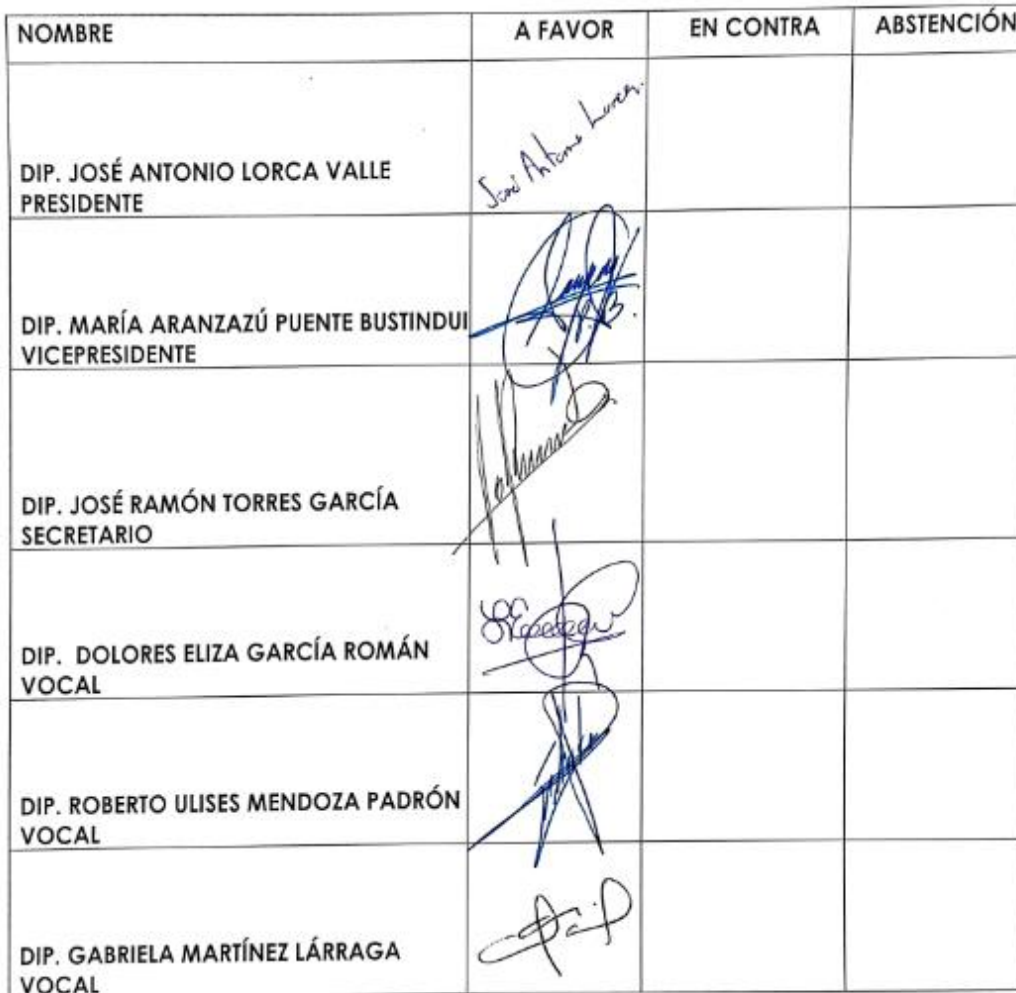 NOMBRE A FAVOR EN CONTRA ABSTENCIÓN
José Antonio Lorca.
DIP. JOSÉ ANTONIO LORCA VALLE
PRESIDENTE
DIP. MARÍA ARANZAZÚ PUENTE BUSTINDUI
VICEPRESIDENTE
DIP. JOSÉ RAMÓN TORRES GARCÍA
SECRETARIO
DIP. DOLORES ELIZA GARCÍA ROMÁN
VOCAL
DIP. ROBERTO ULISES MENDOZA PADRÓN
VOCAL
DIP. GABRIELA MARTÍNEZ LÁRRAGA
VOCAL